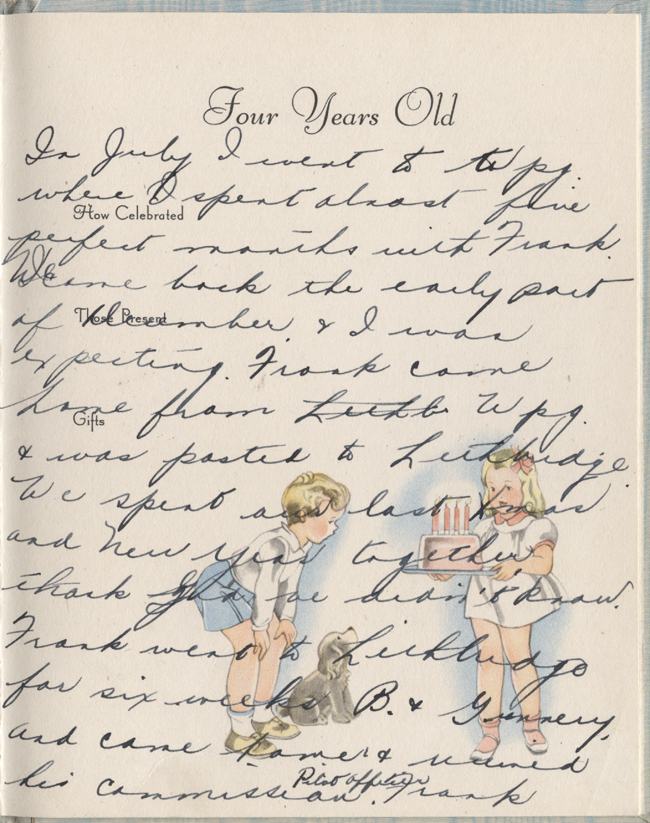 Four Years Old
In July I went to Wpg.
where I spent almost five
How Celebrated
perfect months with Frank.
We came back the early part
of December & I was
Those Present
expecting. Frank came
home from Lethb Wpg.
Gifts
& was posted to Lethbridge.
We spent our last Xmas
and New Year together,
thank God we didn't know.
Frank went to Lethbridge
for six weeks B. & Gunnery,
and came home & received
Pilot officer
his commission. Frank